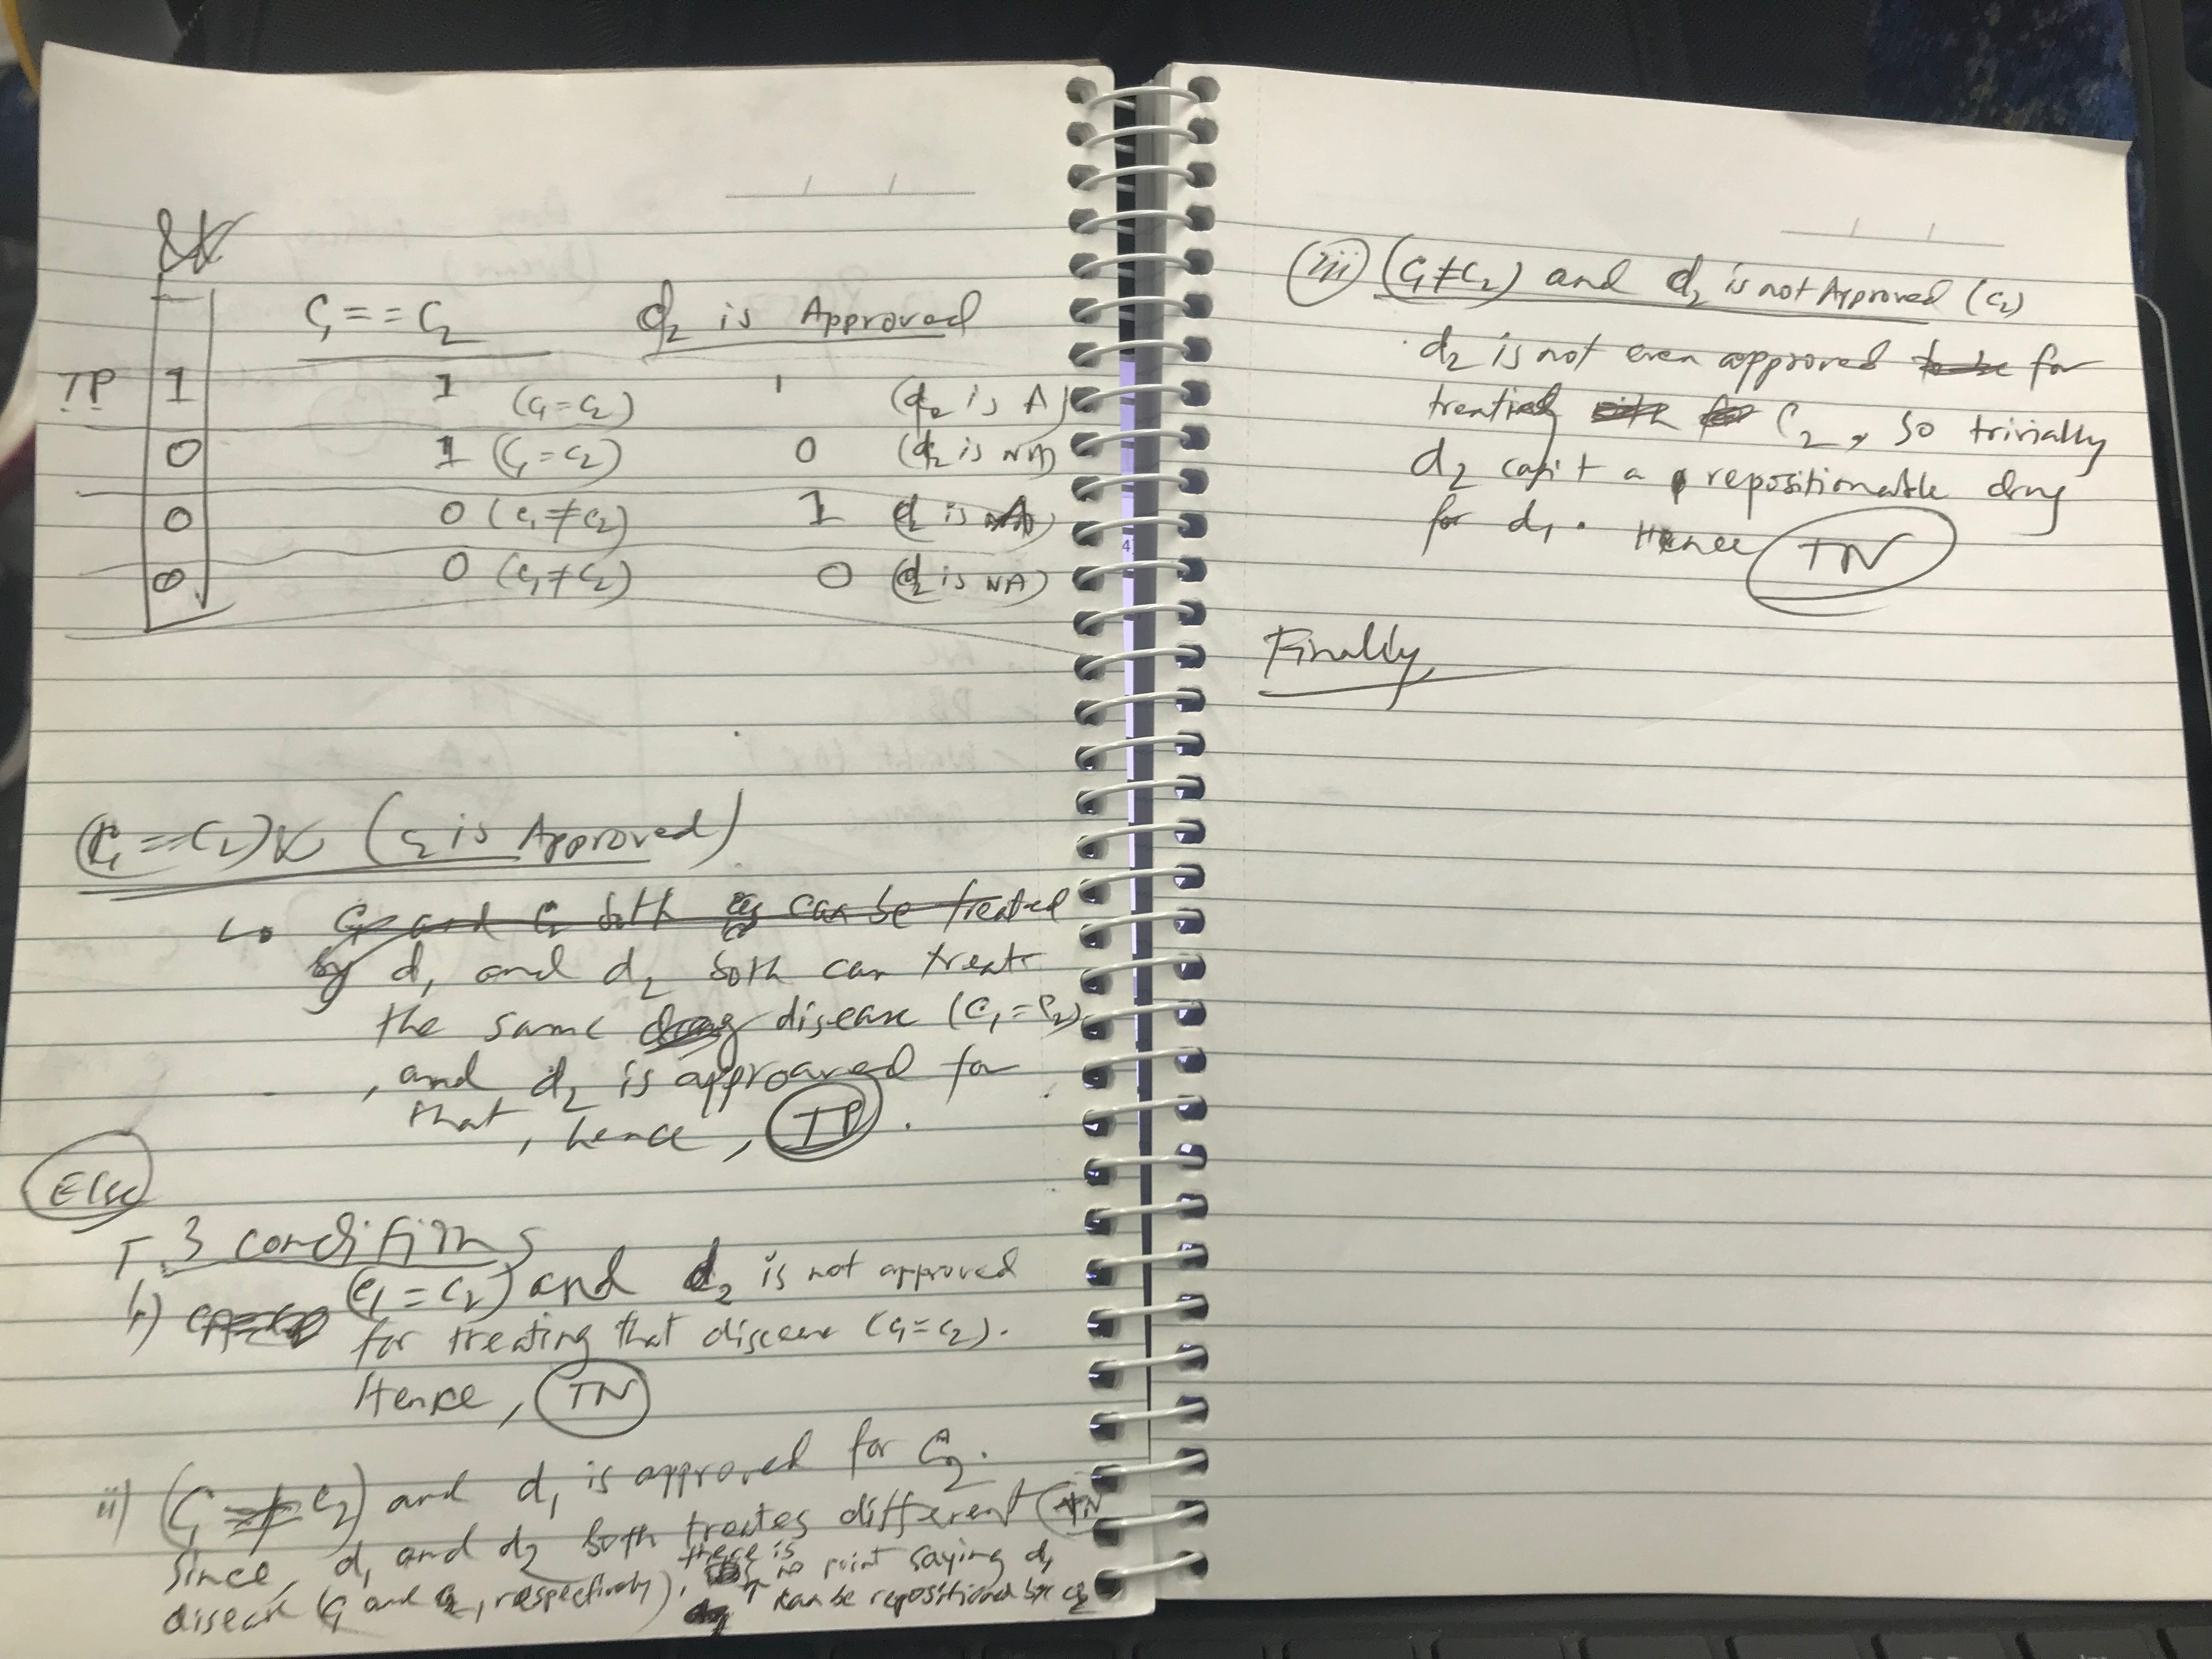 C₁ == C₂ d₂ is Approved
TP 1 1 (C₁ = C₂) 1 (d₂ is A)
0 1 (C₁ = C₂) 0 (d₂ is NA)
0 0 (C₁ ≠ C₂) 1 (d₂ is A)
0 0 (C₁ ≠ C₂) 0 (d₂ is NA)
(C₁ == C₂) & (C₂ is Approved)
↳ C₁ and C₂ both can be treated
by d₁ and d₂ both can treat
the same drug disease (C₁ = C₂)
, and d₂ is approaved for
that, hence, TP.
Else
3 conditions
i) (C₁ = C₂) and d₂ is not approved
for treating that disease (C₁ = C₂).
Hence, TN
ii) (C₁ ≠ C₂) and d₁ is approved for C₂.
Since, d₁ and d₂ both treates different TN
disease (C₁ and C₂, respectively), there is no point saying d₁
can be repositioned by d₂
iii (C₁ ≠ C₂) and d₂ is not Approved (C₂)
d₂ is not even approved to be for
treating C₂, so trivially
d₂ can't a repositionable drug
for d₁. Hence TN
Finally,